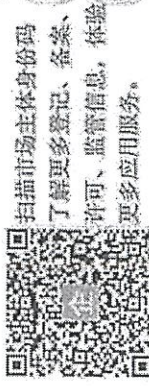 扫描市场主体身份码
了解更多登记、备案、
许可、监管信息，体验
更多应用服务。